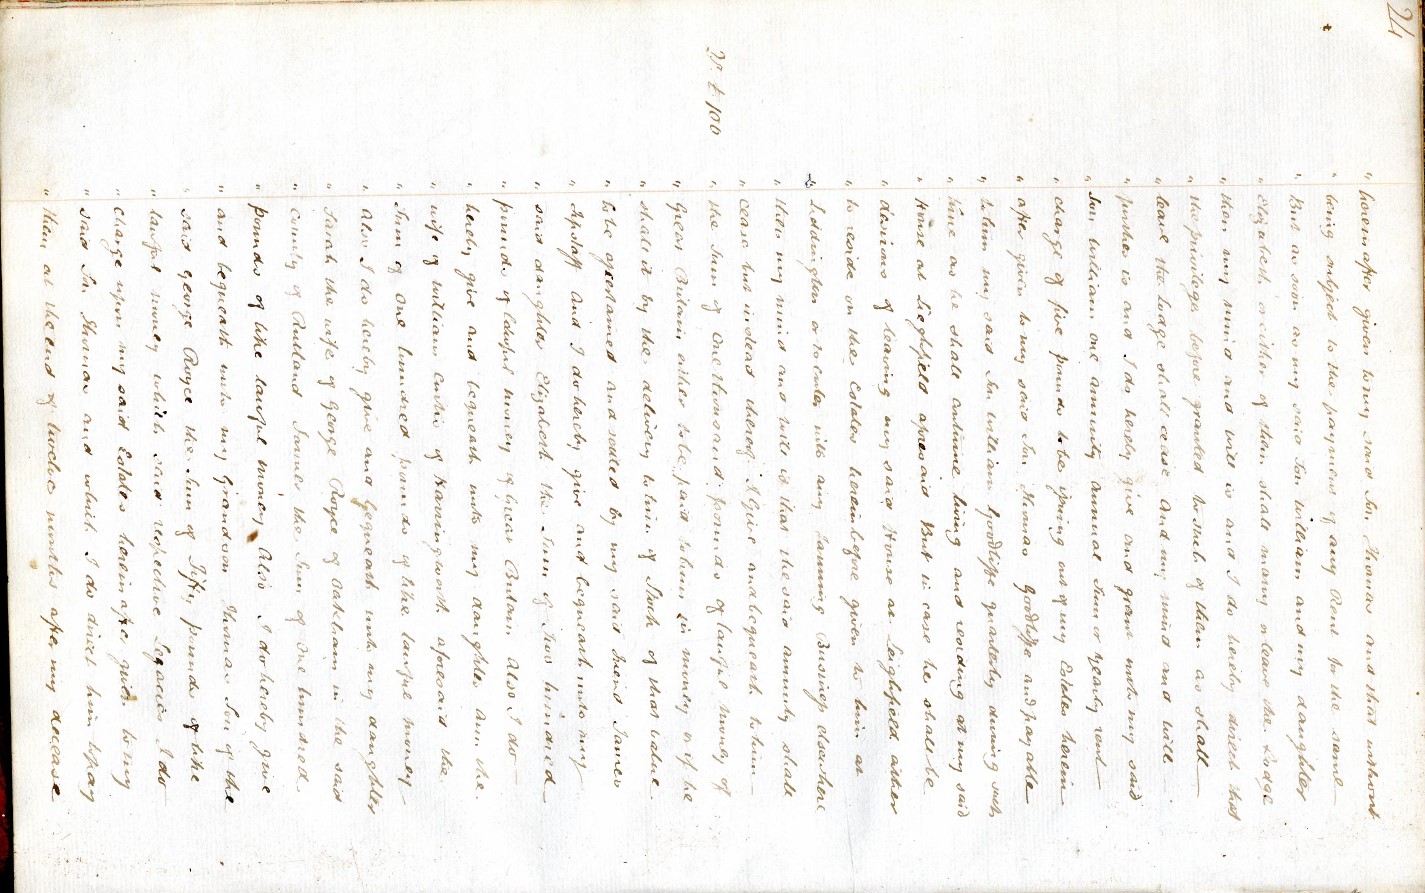 24
" herein after given to my said Son Thomas and that without
" being subject to the payment of any Rent for the same
" But as soon as my said Son William and my daughter
" Elizabeth or either of them shall marry or leave the Lodge
" then my mind and will is and I do hereby direct that
" the priviledges before granted to such of them as shall
" leave the Lodge shall cease And my mind and will
" further is and I do hereby give and grant unto my said
" Son William one annuity annual Sum or yearly rent
" charge of five pounds to be issuing out of my Estates herein
" after given to my said Son Thomas Goodliffe and payable
" to him my said Son William Goodliffe quarterly during such
" time as he shall continue living and residing at my said
" House at Leighfield aforesaid But in case he shall be
" desirous of leaving my said House at Leighfield either
" to reside on the Estates hereinbefore given to him at
" Loddington or to enter into any Farming Business elsewhere
" then my mind and will is that the said annuity shall
" cease but instead thereof I Give and bequeath to him
W. £ 100
" the Sum of One thousand pounds of lawful money of
" Great Britain either to be paid to him in money or if he
" shall it by the delivery to him of Stock of that value
" to be ascertained and settled by my said friend James
" Tiptaft And I do hereby give and bequeath unto my
" said daughter Elizabeth the Sum of Two hundred
" pounds of lawful money of Great Britain Also I do
" hereby give and bequeath unto my daughter Ann the
" wife of William of aforesaid the
" Sum of One hundred pounds of like lawful money
" Also I do hereby give and bequeath unto my daughter
" Sarah the wife of George Royce of Oakham in the said
" County of Rutland the Sum of One hundred
" pounds of like lawful money Also I do hereby give
" and bequeath unto my Grandson Thomas Son of the
" said George Royce the Sum of Fifty pounds of like
" lawful money which said respective Legacies I do
" charge upon my said Estates herein after given to my
" said Son Thomas and which I do direct him to pay
" them at the end of twelve months after my decease